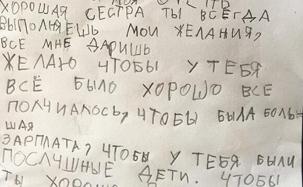 ХОРОШАЯ СЕСТРА ТЫ ВСЕГДА
ВЫПОЛНЯЕШЬ МОИ ЖЕЛАНИЯ,
ВСЕ МНЕ ДАРИШЬ
ЖЕЛАЮ ЧТОБЫ У ТЕБЯ
ВСЁ БЫЛО ХОРОШО ВСЕ
ПОЛЧИАЛОСЬ, ЧТОБЫ БЫЛА БОЛЬ
ШАЯ
ЗАРПЛАТА? ЧТОБЫ У ТЕБЯ БЫЛИ
ПОСЛУШНЫЕ ДЕТИ. ЧТОБЫ
ТЫ